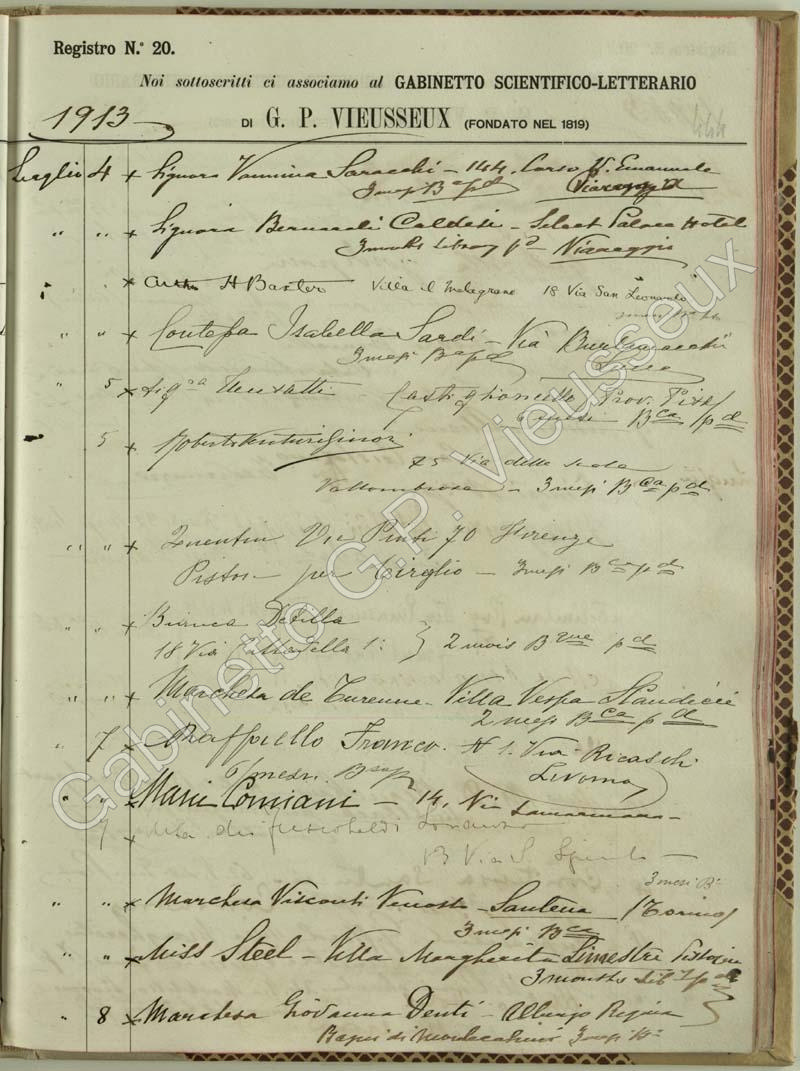 Registro N.° 20.
Noi sottoscritti ci associamo al GABINETTO SCIENTIFICO-LETTERARIO
1913
DI G. P. VIEUSSEUX (FONDATO NEL 1819)
Luglio 4 x Signora Vannina Saracchi - 144. Corso V. Emanuele
3 mesi Bca pd Viareggio
" " x Signora Bernardi Caldesi - Select Palace Hotel
3 months Library pd Viareggio
" x H Baxter Villa il Melagrano 18 Via San Leonardo
" " x Contessa Isabella Sardi - Via Burlamacchi
3 mesi Bca pd Lucca
" 5 x Sigra Castiglioncello Prov. Pisa
6 mesi Bca pd
5 x Roberto Venturi Ginori
75 Via della Scala
Vallombrosa - 3 mesi Bca pd
" " x Via Pinti 70 Firenze
per - 3 mesi Bca pd
" " x Bianca
18 Via 2 mois Bque pd
" " x Marchesa de Turenne - Villa Vespa Scandicci
2 mesi Bca pd
" 7 x Raffaello Franco. N 1. Via Ricasoli
6 mesi Livorno
" " x Maria Comiani - 14, Via Lamarmora -
7
13 Via S. Spirito -
3 mesi B
" " x Marchesa Visconti Venosta - Santena (Torino)
3 mesi Bca
" " x Miss Steel - Villa Margherita Limestre Pistoiese
3 months Lib pd
" 8 x Marchesa Giovanna Denti - Albergo Regina
Bagni di Montecatini 3 mesi B
Gabinetto G.P. Vieusseux